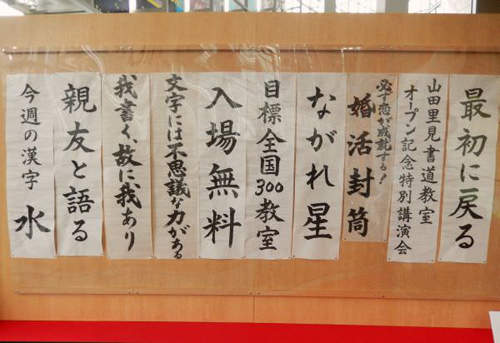 最初に戻る
山田里見書道教室
オープン記念特別講演会
必ず恋が成就する!
婚活封筒
ながれ星
目標全国300教室
入場無料
文字には不思議な力がある
我書く、故に我あり
親友と語る
今週の漢字 水